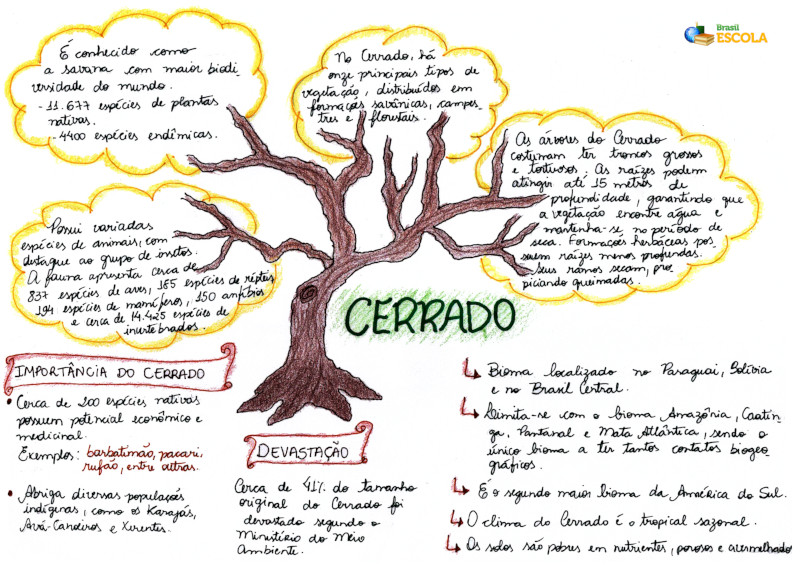 Brasil
ESCOLA
É conhecido como
a savana com maior biodi-
versidade do mundo.
- 11.677 espécies de plantas
nativas.
- 4400 espécies endêmicas.
No Cerrado, há
onze principais tipos de
vegetação, distribuídos em
formações savânicas, campes-
tres e florestais.
As árvores do Cerrado
costumam ter troncos grossos
e tortuosos. As raízes podem
atingir até 15 metros de
profundidade, garantindo que
a vegetação encontre água e
mantenha-se no período de
seca. Formações herbáceas pos-
suem raízes menos profundas.
Seus ramos secam, pro-
piciando queimadas.
Possui variadas
espécies de animais, com
destaque ao grupo de insetos.
A fauna apresenta cerca de
837 espécies de aves, 185 espécies de répteis,
194 espécies de mamíferos, 150 anfíbios
e cerca de 14.425 espécies de
invertebrados.
CERRADO
IMPORTÂNCIA DO CERRADO
• Cerca de 200 espécies nativas
possuem potencial econômico e
medicinal.
Exemplos: barbatimão, pacari,
rufão, entre outras.
• Abriga diversas populações
indígenas, como os Karajás,
Avá-Canoeiros e Xerentes.
DEVASTAÇÃO
Cerca de 41% do tamanho
original do Cerrado foi
devastado segundo o
Ministério do Meio
Ambiente.
Bioma localizado no Paraguai, Bolívia
e no Brasil Central.
Limita-se com o bioma Amazônia, Caatin-
ga, Pantanal e Mata Atlântica, sendo o
único bioma a ter tantos contatos biogeo
gráficos.
É o segundo maior bioma da América do Sul.
O clima do Cerrado é o tropical sazonal.
Os solos são pobres em nutrientes, porosos e avermelhados